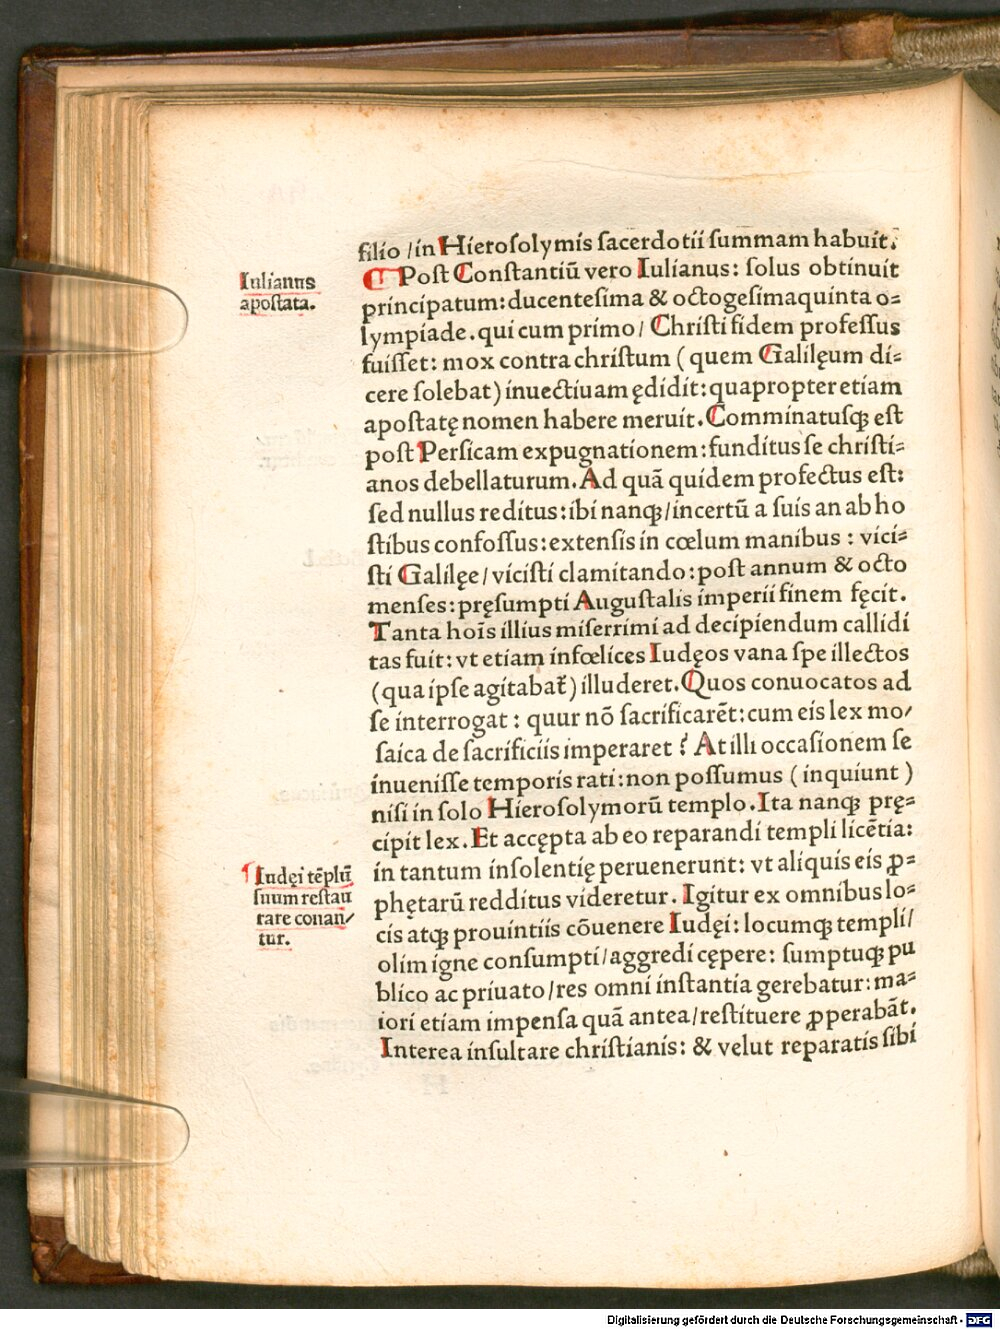 filio /in Hierosolymis sacerdotii summam habuit.
¶ Post Constantiū vero Iulianus: solus obtinuit
principatum: ducentesima & octogesimaquinta o=
lympiade. qui cum primo / Christi fidem professus
fuisset: mox contra christum ( quem Galilęum di=
cere solebat) inuectiuam ędidit: quapropter etiam
apostatę nomen habere meruit. Comminatusqꝫ est
post Persicam expugnationem: funditus se christi=
anos debellaturum. Ad quā quidem profectus est:
sed nullus reditus: ibi nanqꝫ/incertū a suis an ab ho
stibus confossus: extensis in cœlum manibus : vici=
sti Galilęe / vicisti clamitando: post annum & octo
menses: pręsumpti Augustalis imperii finem fęcit.
Tanta hoīs illius miserrimi ad decipiendum callidi
tas fuit: vt etiam infœlices Iudęos vana spe illectos
(qua ipse agitabat̄) illuderet. Quos conuocatos ad
se interrogat : quur nō sacrificarēt: cum eis lex mo/
saica de sacrificiis imperaret ? At illi occasionem se
inuenisse temporis rati: non possumus ( inquiunt )
nisi in solo Hierosolymorū templo. Ita nanqꝫ prę=
cipit lex. Et accępta ab eo reparandi templi licētia:
in tantum insolentię peruenerunt: vt aliquis eis ꝓ=
phętarū redditus videretur. Igitur ex omnibus lo=
cis atqꝫ prouintiis cōuenere Iudęi: locumqꝫ templi/
olim igne consumpti/aggredi cępere: sumptuqꝫ pu
blico ac priuato/res omni instantia gerebatur: ma=
iori etiam impensa quā antea/restituere ꝓperabāt.
Interea insultare christianis: & velut reparatis sibi
Iulianus
apostata.
¶ Iudęi tēplū
suum restau
rare conan/
tur.
Digitalisierung gefördert durch die Deutsche Forschungsgemeinschaft - DFG